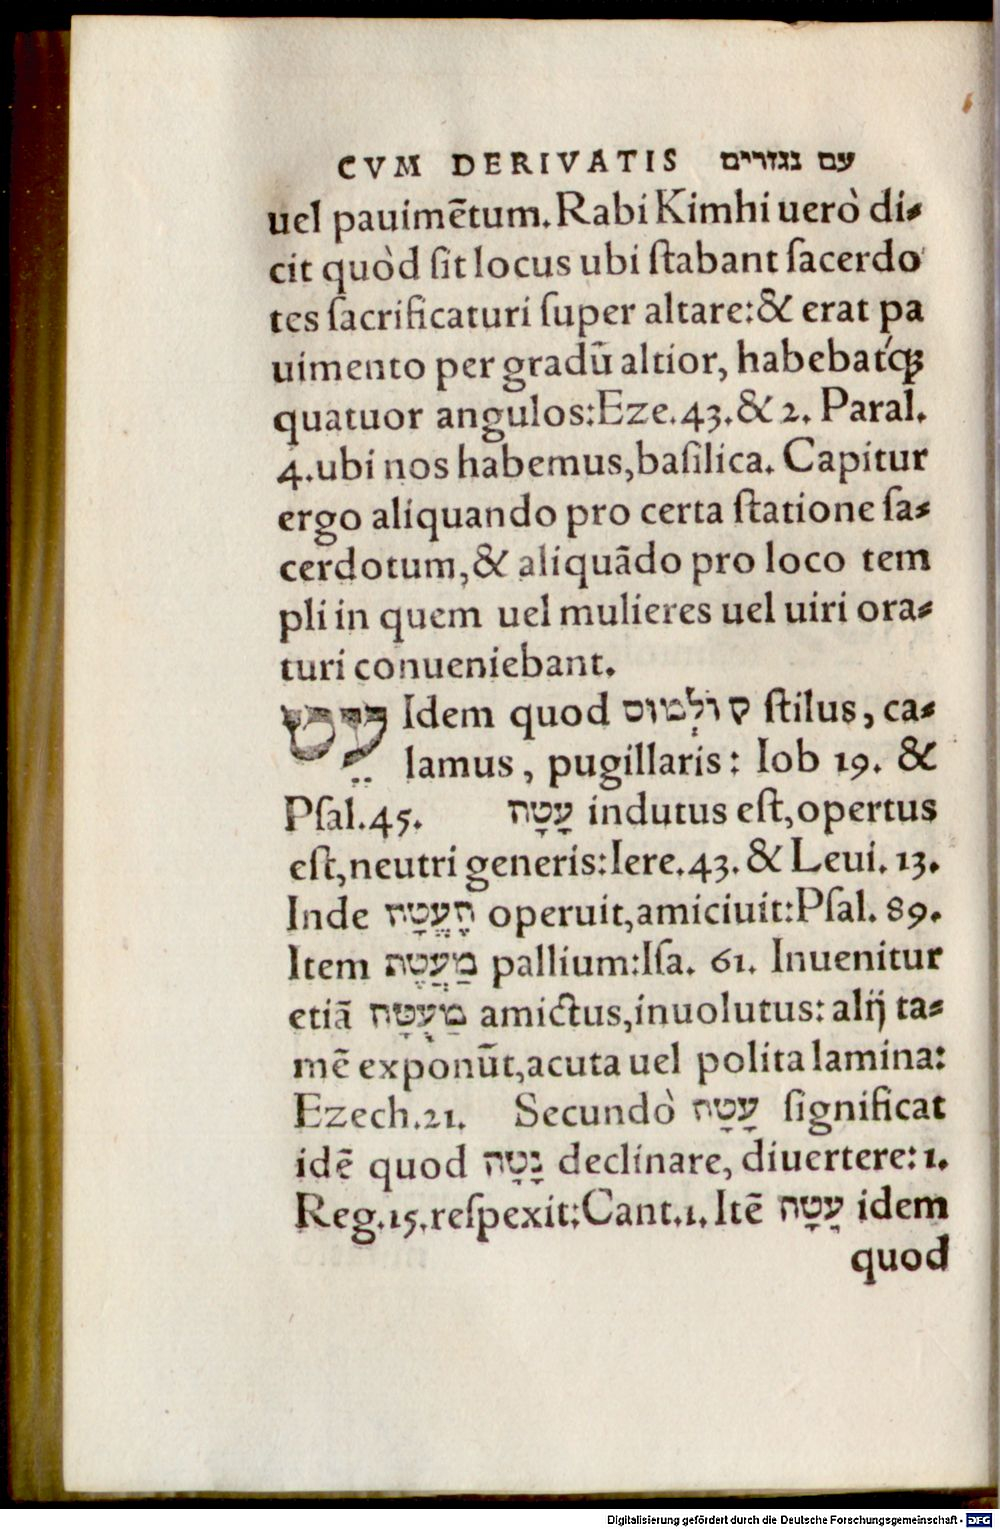 CVM DERIVATIS עם נגזרים
uel pauimẽtum. Rabi Kimhi uerò di-
cit quòd ſit locus ubi ſtabant ſacerdo
tes ſacrificaturi ſuper altare: & erat pa
uimento per gradũ altior, habebatq́ꝫ
quatuor angulos: Eze. 43. & 2. Paral.
4. ubi nos habemus, baſilica. Capitur
ergo aliquando pro certa ſtatione ſa-
cerdotum, & aliquãdo pro loco tem
pli in quem uel mulieres uel uiri ora-
turi conueniebant.
Idem quod קוֹלְמוס ſtilus, ca-
lamus, pugillaris: Iob 19. &
Pſal. 45. עָטָה indutus eſt, opertus
eſt, neutri generis: Iere. 43. & Leui. 13.
Inde הֶעֱטָה operuit, amiciuit: Pſal. 89.
Item מַעֲטֶה pallium: Iſa. 61. Inuenitur
etiã מַעֻטָּה amictus, inuolutus: alij ta-
mẽ exponũt, acuta uel polita lamina:
Ezech. 21. Secundò עָטָה ſignificat
idẽ quod נָטָה declinare, diuertere: 1.
Reg. 15. reſpexit: Cant. 1. Itẽ עָטָה idem
quod
Digitalisierung gefördert durch die Deutsche Forschungsgemeinschaft - DFG